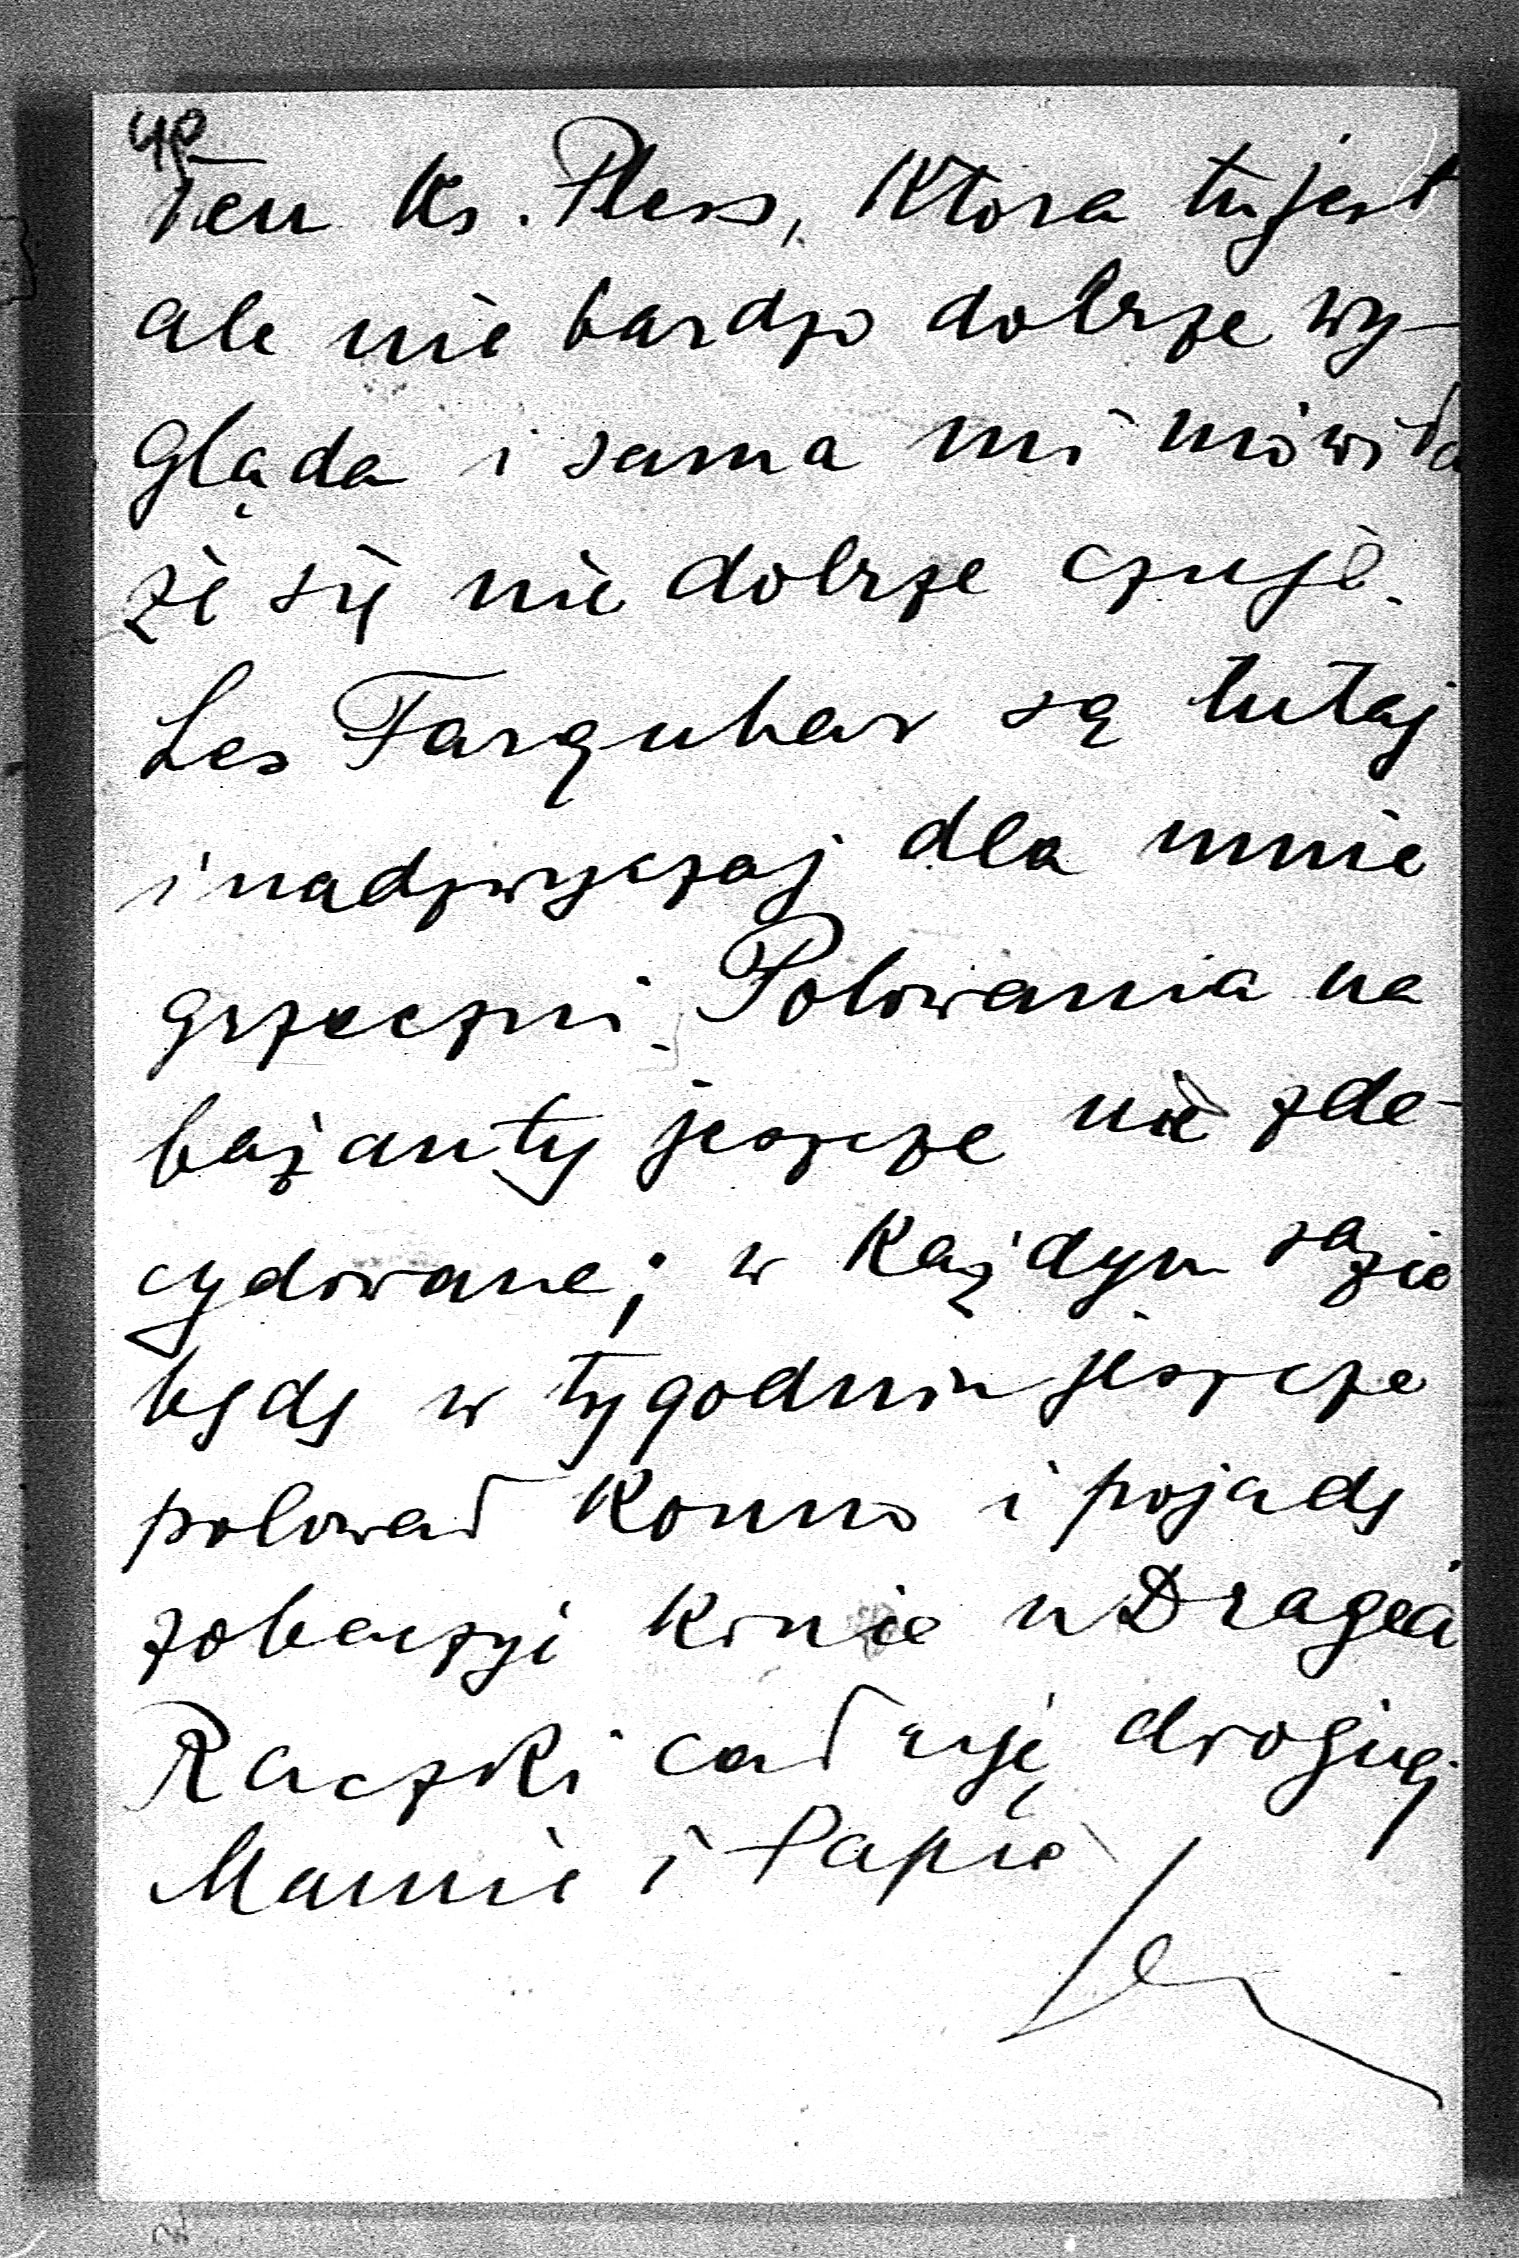 48
Ten ks. Pless, która tu jest
ale nie bardzo dobrze wy-
gląda i sama mi mówiła
że się nie dobrze czuje.
Les Farquhar są tutaj
i nadzwyczaj dla mnie
grzeczni. Polowania na
bażanty jeszcze nie zde-
cydowane; w każdym razie
będę w tygodniu jeszcze
polował konno i pojadę
zobaczyć konie u Dragea
Raczki całuję drogiej
Mamie i Papie